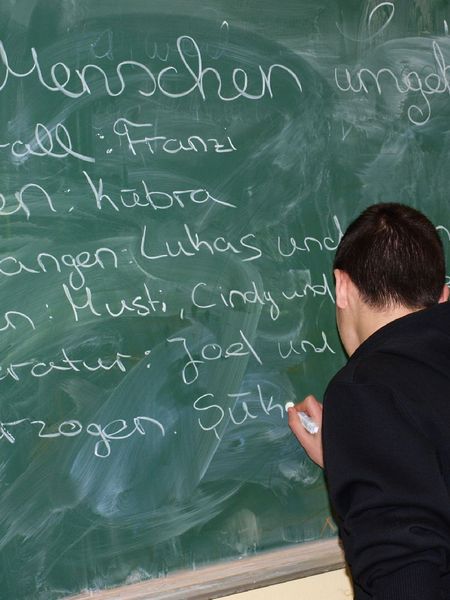 Menschen umgeh
rall: Franzi
en: Kübra
angen: Lukas und
n: Musti, Cindy und
eratur: Joel und
rzogen: Şük